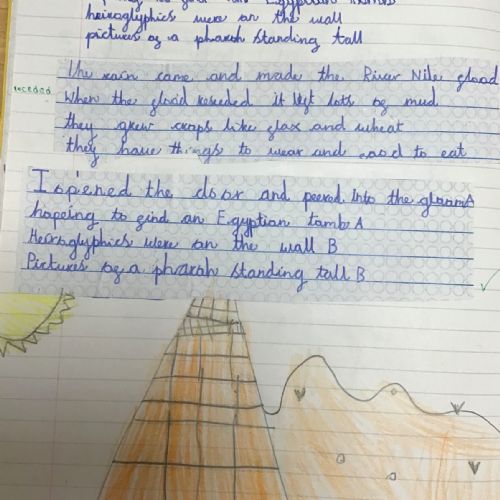 Egyptian
heiroglyphics were on the wall
pictures of a pharoh standing tall
The rain came and made the River Nile flood
receded
When the flood reseeded it left lots of mud
they grew crops like flax and wheat
they have things to wear and food to eat
I opened the door and peered into the gloom A
hopeing to find an Egyptian tomb A
Heiroglyphics were on the wall B
Pictures of a pharoh standing tall B